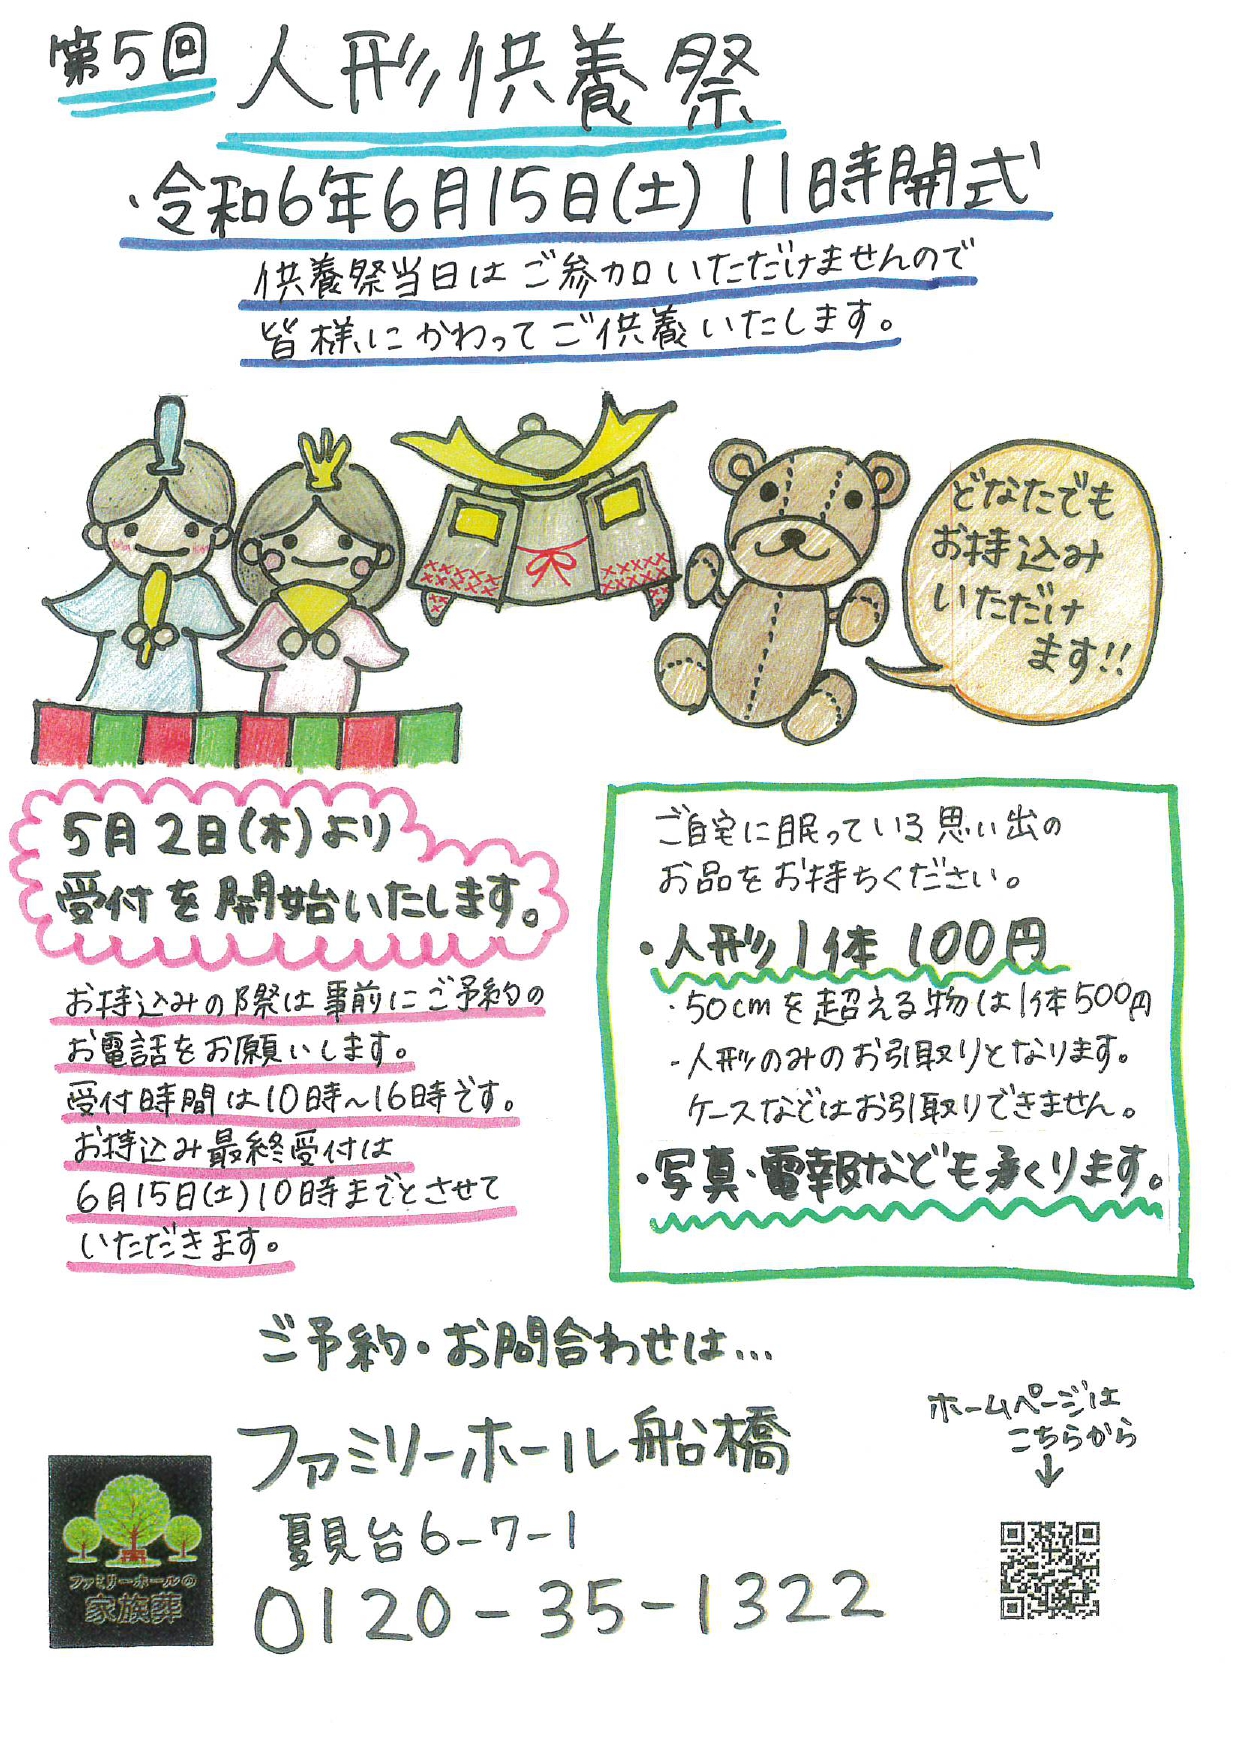 第5回 人形供養祭
・令和6年6月15日(土) 11時開式
供養祭当日はご参加いただけませんので
皆様にかわってご供養いたします。
どなたでも
お持込み
いただけ
ます!!
5月2日(木)より
受付を開始いたします。
お持込みの際は事前にご予約の
お電話をお願いします。
受付時間は10時~16時です。
お持込み最終受付は
6月15日(土)10時までとさせて
いただきます。
ご自宅に眠っている思い出の
お品をお持ちください。
・人形1体 100円
・50cmを超える物は1体500円
・人形のみのお引取りとなります。
ケースなどはお引取りできません。
・写真・電報なども承ります。
ご予約・お問合わせは…
ファミリーホール船橋
夏見台6-7-1
0120-35-1322
ホームページは
こちらから
↓
ファミリーホールの
家族葬